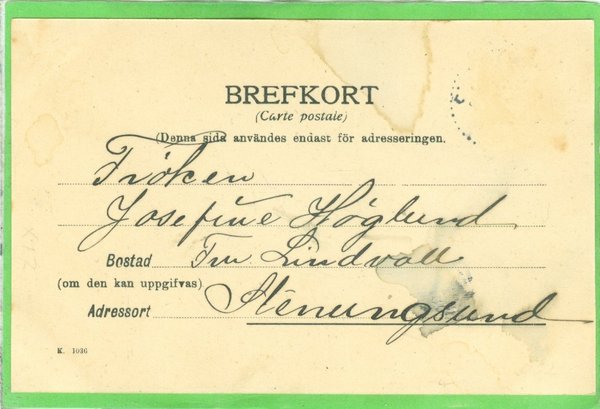 BREFKORT
(Carte postale)
(Denna sida användes endast för adresseringen.
Fröken
Josefine Höglund
Bostad Fru Lindvall
(om den kan uppgifvas)
Adressort Stenungsund
K. 1036